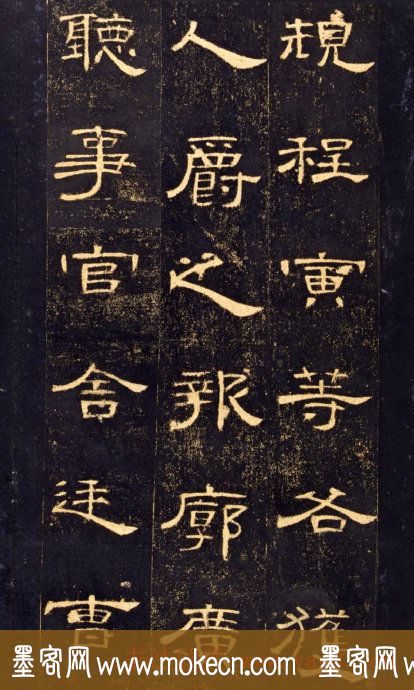 規程寅等各獲
人爵之報廓廣
聽事官舍廷曹
墨客网 www.mokecn.com 墨客网